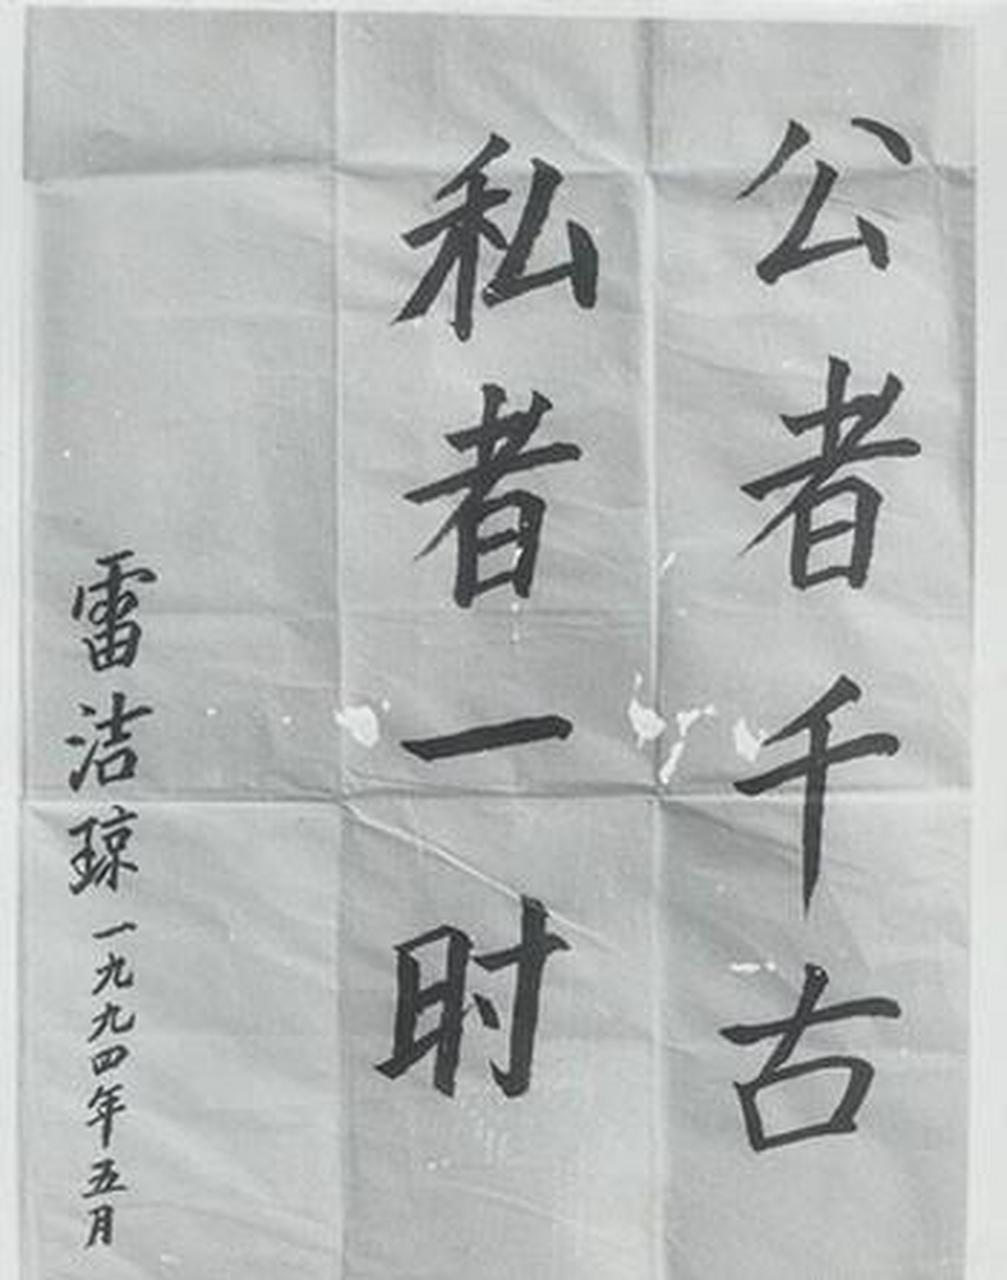 公者千古
私者一时
雷洁琼
一九九四年五月